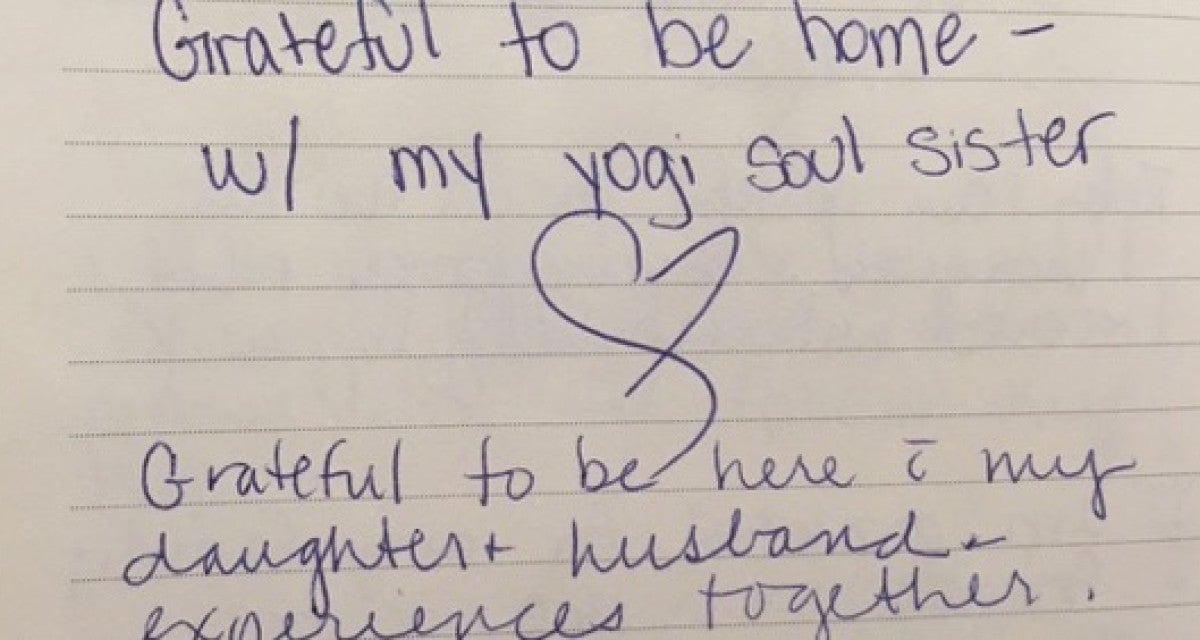 Grateful to be home -
w/ my yogi soul sister
Grateful to be here c̄ my
daughter + husband -
experiences together.